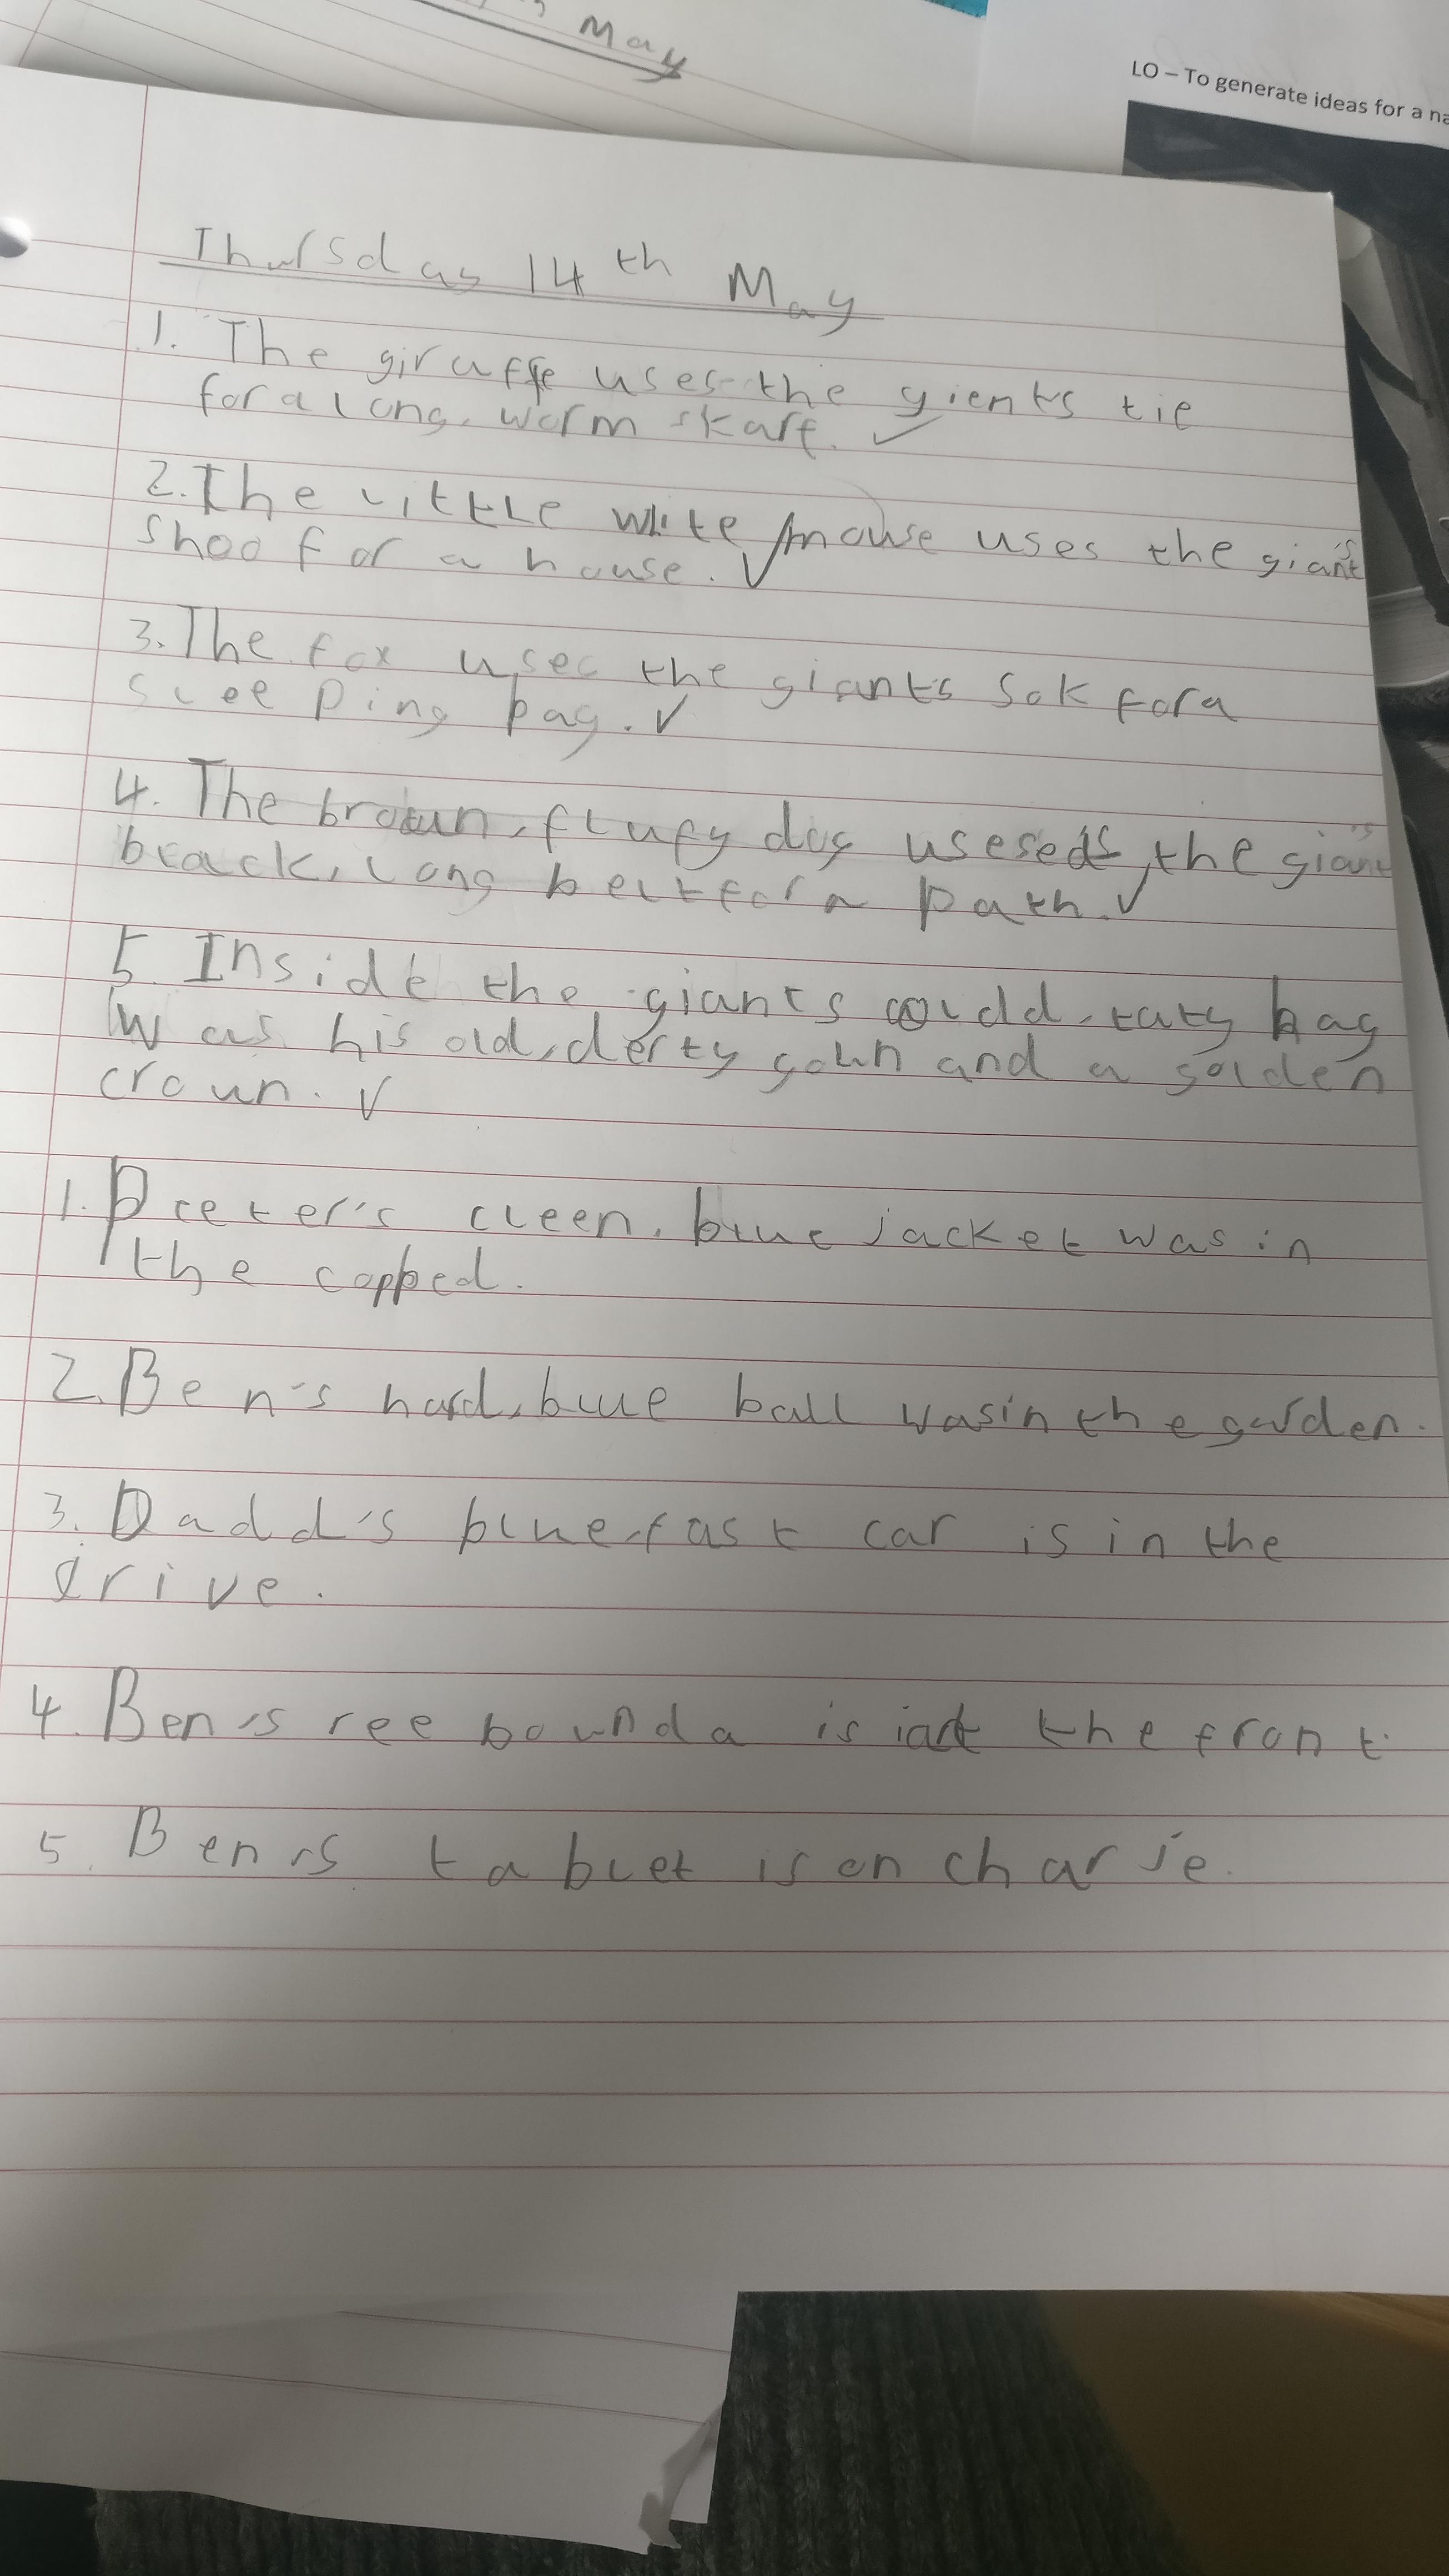 May
LO – To generate ideas for a na
Thursday 14th May
1. The giraffe uses the gients tie
for a long, worm skarf. ✓
2. The little white mouse uses the giant's
shoo for a house. ✓
3. The fox uses the giants sok for a
sleeping bag. ✓
4. The brown, flufy dog uses the giant's
black, long belt for a path. ✓
5. Inside the giantsould, taty bag
was his old, derty goun and a golden
croun. ✓
1. Peeter's cleen, blue jacket was in
the copped.
2. Ben's hard, blue ball was in the garden.
3. Dadd's blue, fast car is in the
drive.
4. Ben's ree bounda is at the front.
5. Ben's tablet is on charje.